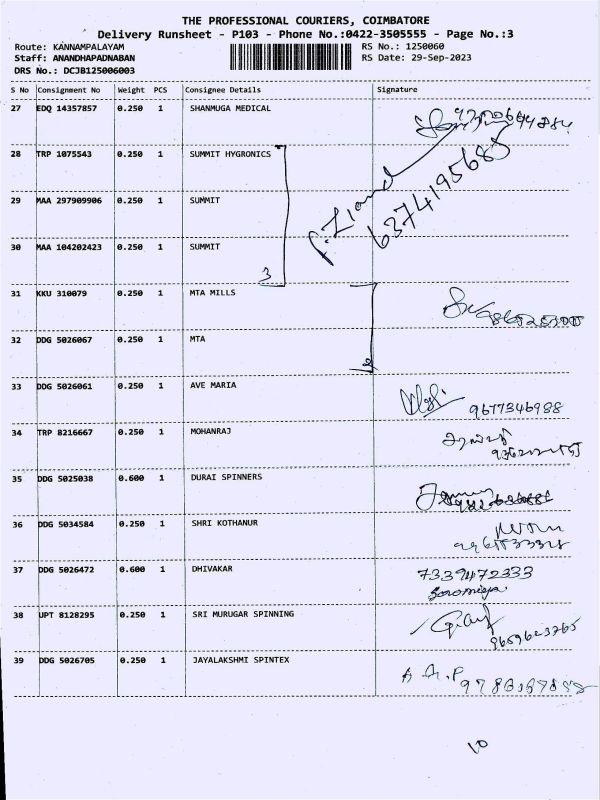 THE PROFESSIONAL COURIERS, COIMBATORE
Delivery Runsheet - P103 - Phone No.:0422-3505555 - Page No.:3
Route: KANNAMPALAYAM RS No.: 1250060
Staff: ANANDHAPADNABAN RS Date: 29-Sep-2023
DRS No.: DCJB125006003
S No Consignment No Weight PCS Consignee Details Signature
27 EDQ 14357857 0.250 1 SHANMUGA MEDICAL
28 TRP 1075543 0.250 1 SUMMIT HYGRONICS
6374195685
29 MAA 297909906 0.250 1 SUMMIT
30 MAA 104202423 0.250 1 SUMMIT
3
31 KKU 310079 0.250 1 MTA MILLS
32 DDG 5026067 0.250 1 MTA
2
33 DDG 5026061 0.250 1 AVE MARIA
9677346988
34 TRP 8216667 0.250 1 MOHANRAJ
35 DDG 5025038 0.600 1 DURAI SPINNERS
36 DDG 5034584 0.250 1 SHRI KOTHANUR
37 DDG 5026472 0.600 1 DHIVAKAR 7339472333
38 UPT 8128295 0.250 1 SRI MURUGAR SPINNING
39 DDG 5026705 0.250 1 JAYALAKSHMI SPINTEX
10